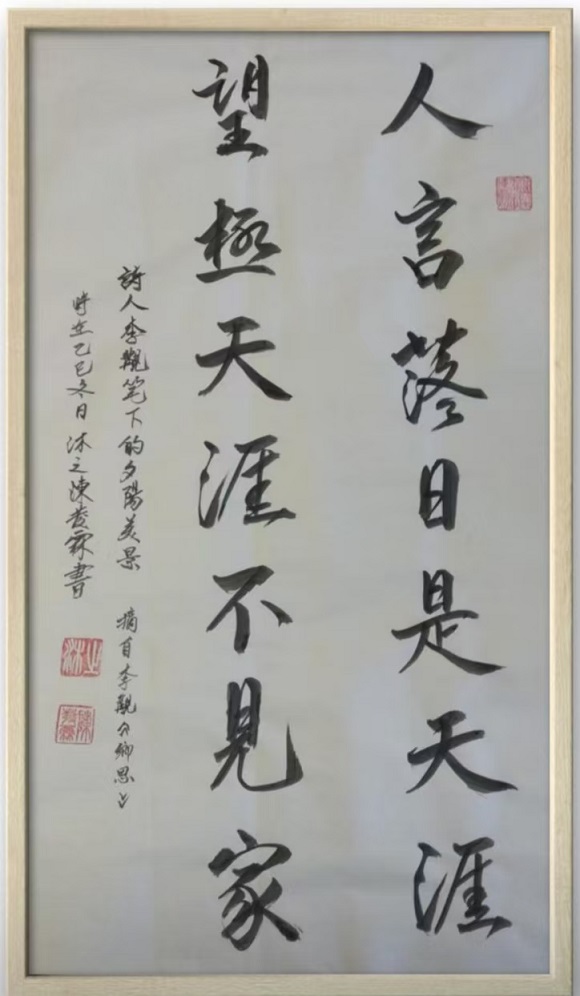 人言落日是天涯
望極天涯不見家
詩人李觀笔下的夕陽美景 摘自李觀《鄉思》
時在乙巳冬日沐之陳發霖書
沐之